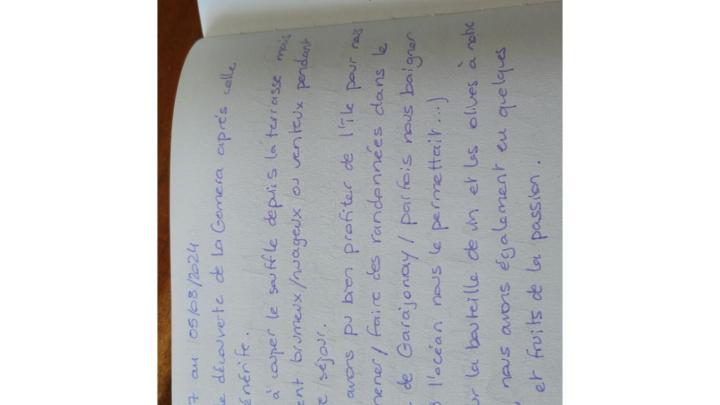 au 05/08/2024
découverte de la Gomera après celle
énérife.
à couper le souffle depuis la terrasse mais
ent brumeux/nuageux ou venteux pendant
séjour.
avons pu bien profiter de l'île pour nous
mener/ faire des randonnées dans le
de Garajonay/ parfois nous baigner
l'océan nous le permettait...)
ur la bouteille de vin et les olives à notre
nous avons également eu quelques
et fruits de la passion.